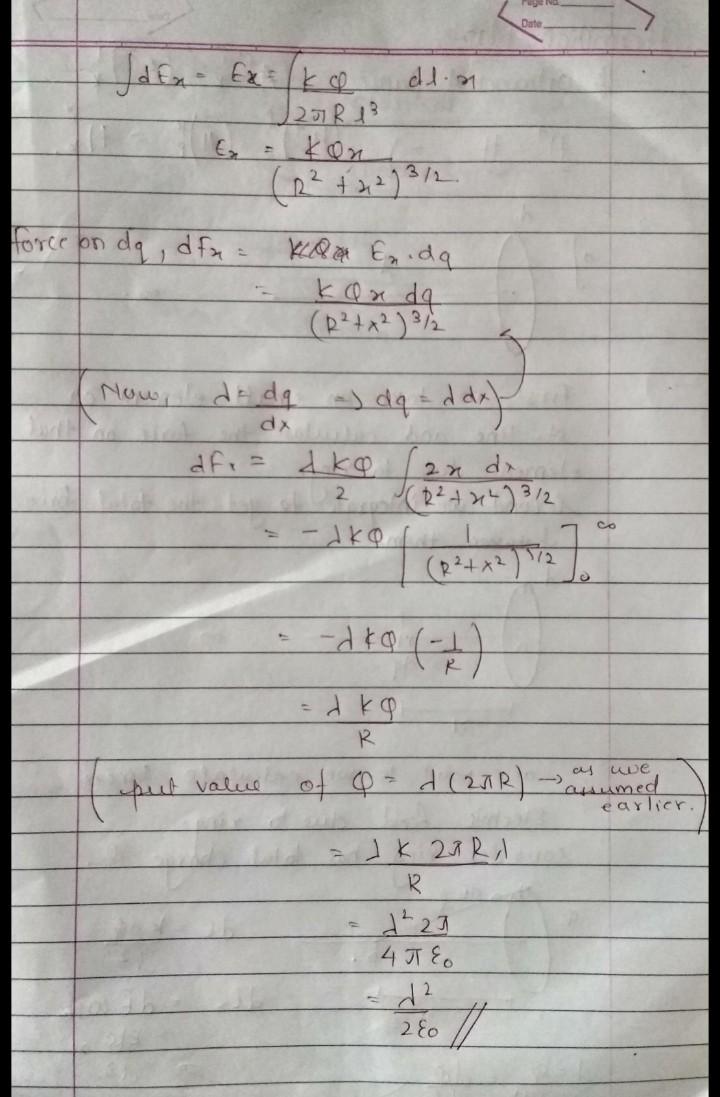 Page No.
Date
∫dEx = Ex = ∫ kQ / 2πR l³ dl·x
Ex = kQx / (R² + x²)^3/2
force on dq, dFx = Ex·dq
= kQx dq / (R²+x²)^3/2
(Now, λ = dq/dx => dq = λdx)
dFx = λkQ/2 ∫ 2x dx / (R²+x²)^3/2
= -λkQ [1 / (R²+x²)^1/2]₀^∞
= -λkQ (-1/R)
= λkQ / R
(put value of Q = λ(2πR) → as we assumed earlier.)
= λ K 2πRλ / R
= λ² 2π / 4πε₀
= λ² / 2ε₀ //